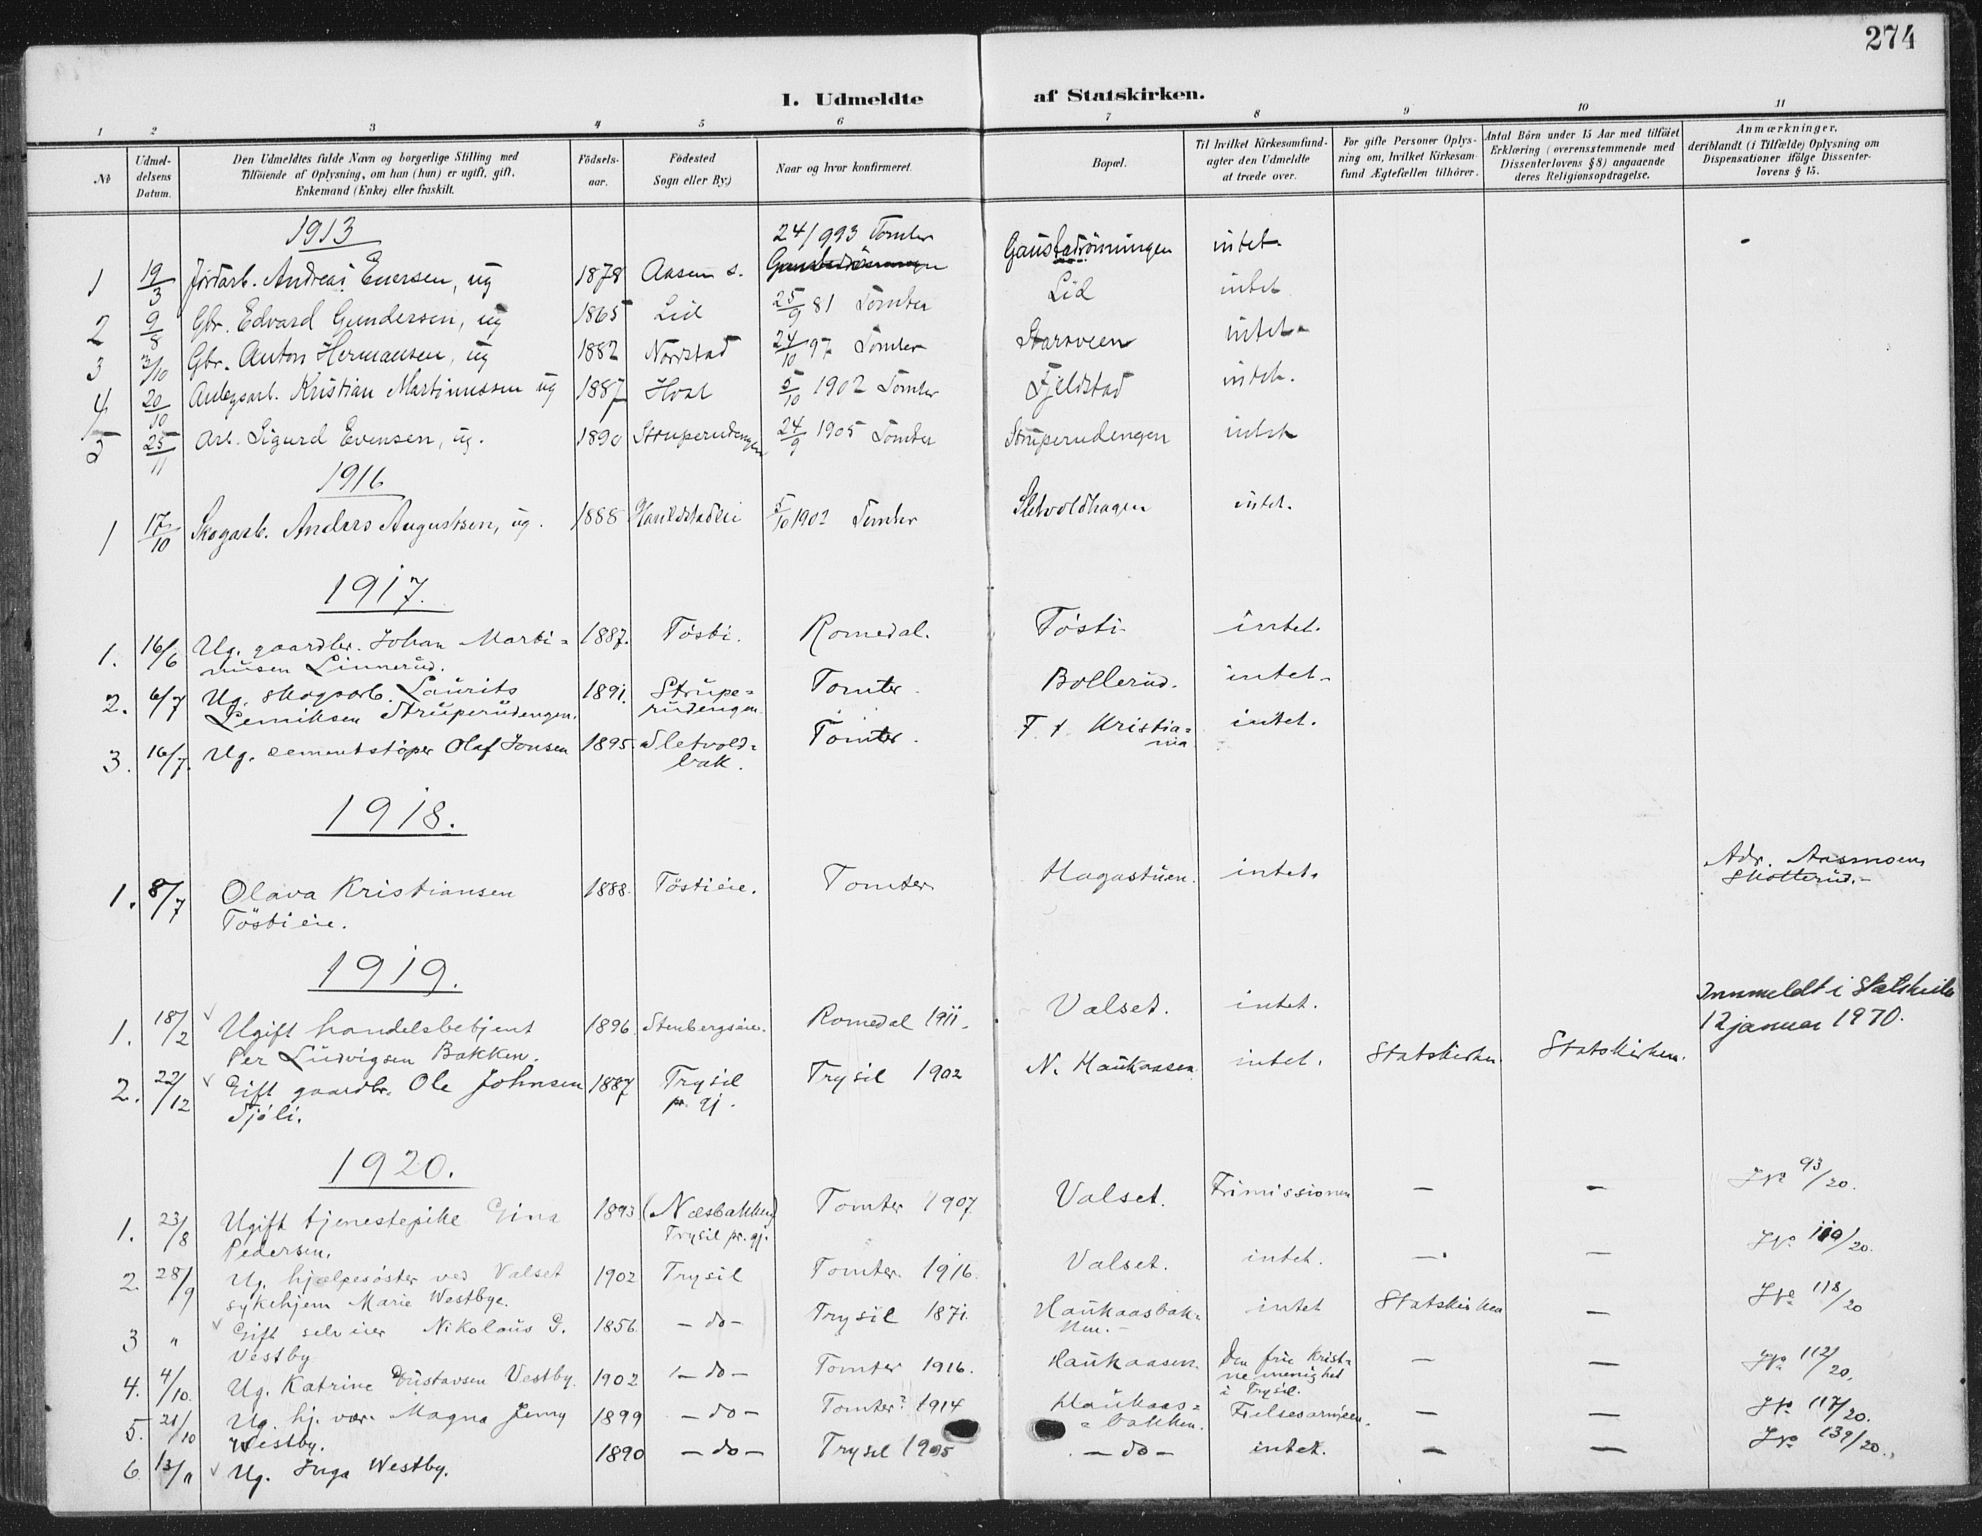 274
I. Udmeldte af Statskirken.
1 2 3 4 5 6 7 8 9 10 11
№
Udmel-
delsens
Datum.
Den Udmeldtes fulde Navn og borgerlige Stilling med
Tilföiende af Oplysning, om han (hun) er ugift, gift,
Enkemand (Enke) eller fraskilt.
Födsels-
aar.
Födested
Sogn eller By.)
Naar og hvor konfirmeret.
Bopæl.
Til hvilket Kirkesamfund
agter den Udmeldte
at træde over.
For gifte Personer Oplys-
ning om, hvilket Kirkesam-
fund Ægtefællen tilhörer.
Antal Börn under 15 Aar med tilföiet
Erklæring (overensstemmende med
Dissenterlovens § 8) angaaende
deres Religionsopdragelse.
Anmærkninger,
deriblandt (i Tilfælde) Oplysning om
Dispensationer ifölge Dissenter-
lovens § 15.
1913
24/9 93 Tomter
1 19/3 Jordarb. Andreas Evensen, ug 1878 Aasen s. Gaustadrönningen intet
2 9/8 Gbr. Edvard Gundersen, ug 1865 Lid 25/9 81 Tomter Lid intet
3 3/10 Gbr. Anton Hermansen, ug 1882 Nordstad 24/10 97 Tomter intet
4 20/10 Anlegsarb. Kristian Martinussen ug 1887 Hval 5/10 1902 Tomter Fjeldstad intet.
5 25/11 Arb. Sigurd Evensen, ug. 1890 Struperudengen 24/9 1905 Tomter Struperudengen intet
1916
1 17/10 Skogarb. Anders Augustsen, ug. 1888 5/10 1902 Tomter Sletvoldhagen intet.
1917.
1. 16/6 Ug. gaardbr. Johan Marti= 1887. Tösti. Romedal. Tösti intet.
nusen Linnerud.
2. 6/7 Ug. skogsarb. Laurits 1891. Strupe= Tomter. Bollerud. intet.
Lemiksen Struperudengen. rudengen.
3. 16/7. Ug. sementstöper Olaf Jonsen 1895. Sletvold= Tomter. F. t. Kristia= intet.
bak. nia.
1918.
1. 8/7 Olava Kristiansen 1888. Töstieie. Tomter Hagastuen. intet. Adr. Aasmoen
Töstieie. Skotterud.-
1919.
1. 18/2 Ugift handelsbetjent 1896. Stenbergseie. Romedal 1911. Valset. intet. Innmeldt i Statskirken
Per Ludvigsen Bakken. 12 januar 1970.
2. 22/12 Gift gaardbr. Ole Johnsen 1887 Trysil Trysil 1902 N. Haukaasen intet. Statskirken. Statskirken.
Sjöli. pr. gj.
1920.
1. 23/8 Ugift tjenestepike Gina 1893 (Næsbakken) Tomter 1907 Valset. Frimissionen — — JNo 93/20.
Pedersen. Trysil pr. gj.
2. 28/9 Ug. hjælpesöster ved Valset 1902 Trysil Tomter 1916. Valset. intet. — — JNo 119/20.
sykehjem Marie Westbye.
3 " Gift selveier Nikolaus G. 1856. — do — Trysil 1871. Haukaasbak= intet Statskirken — JNo 118/20
Vestby ken.—
4. 4/10. Ug. Katrine Gustavsen Vestby. 1902 — do — Tomter 1916. Haukaasen. Den frie Krist= — — JNo 112/20.
ne menighet
i Trysil.
5. 21/10 Ug. hj. vær. Magna Jenny 1899 — do — Tomter? 1914 Haukaas= Frelsesarmeen. — — JNo 117/20.
Westby. =bakken.
6. 13/11 Ug. Inga Westby. 1890 — do — Trysil 1905 — do — intet. — — JNo 139/20.